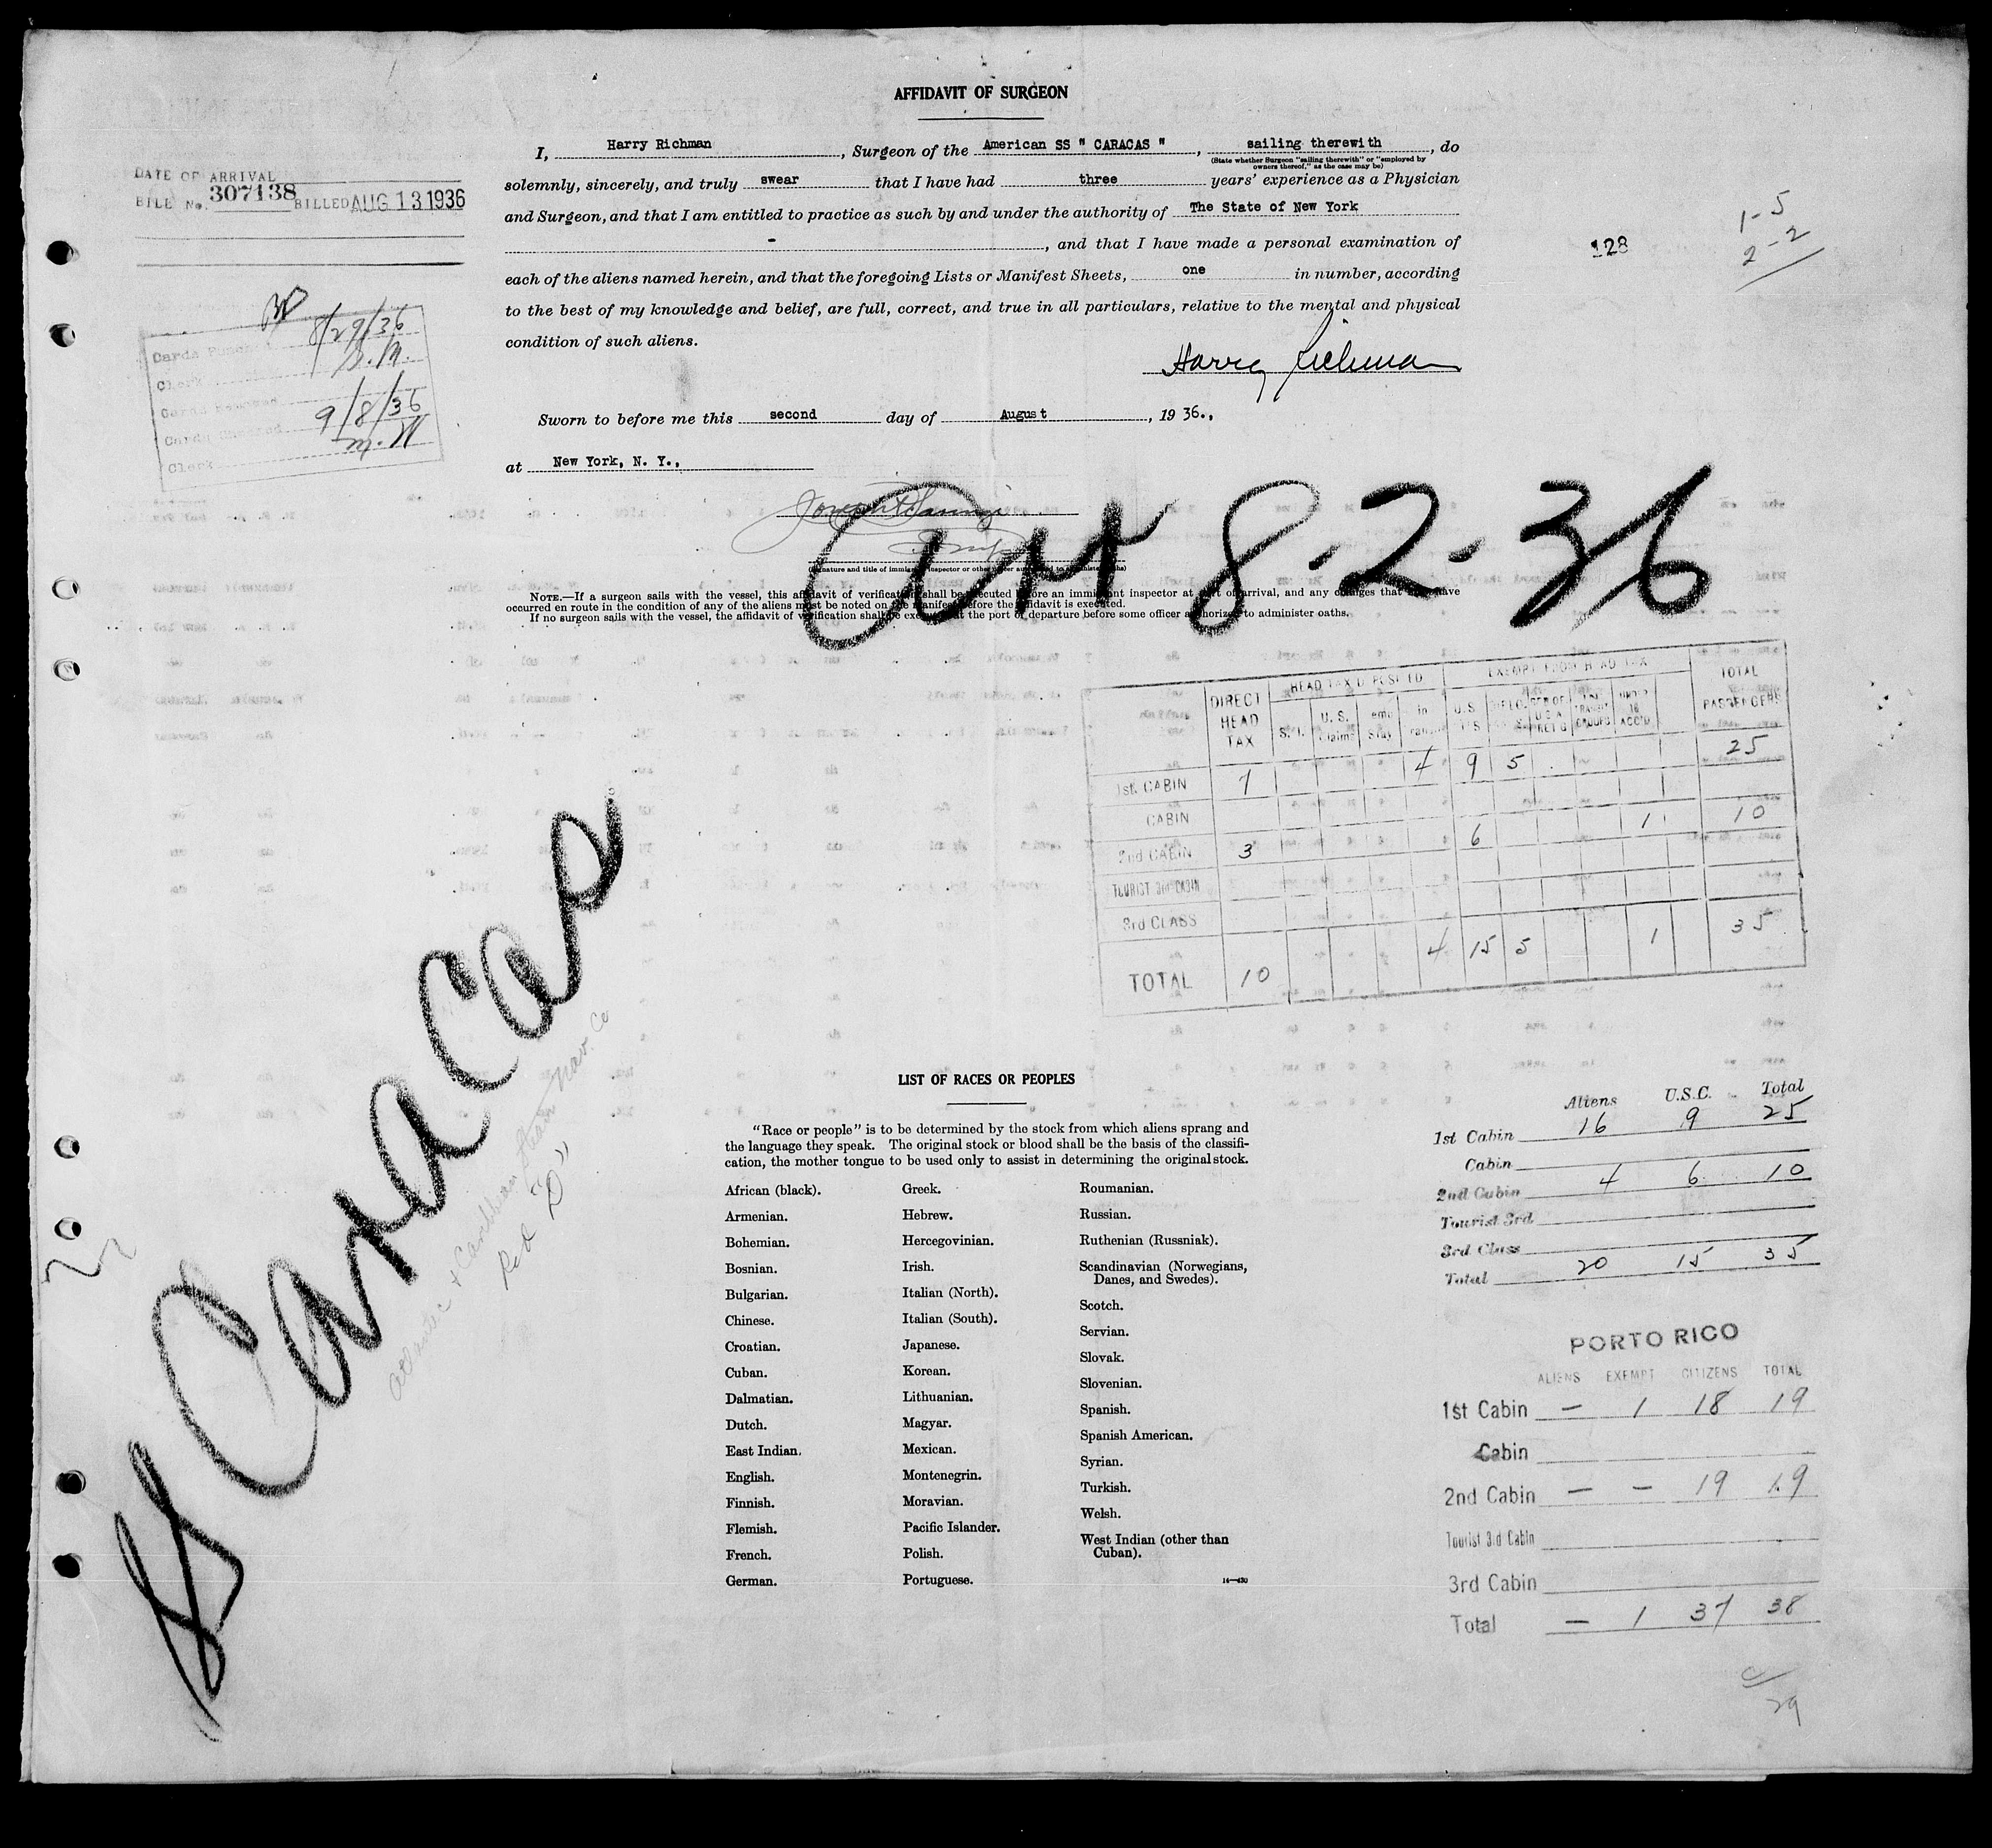 AFFIDAVIT OF SURGEON
I, Harry Richman, Surgeon of the American SS " CARACAS ", sailing therewith, do
(State whether Surgeon "sailing therewith" or "employed by
owners thereof," as the case may be)
solemnly, sincerely, and truly swear that I have had three years' experience as a Physician
and Surgeon, and that I am entitled to practice as such by and under the authority of The State of New York
-, and that I have made a personal examination of
each of the aliens named herein, and that the foregoing Lists or Manifest Sheets, one in number, according
to the best of my knowledge and belief, are full, correct, and true in all particulars, relative to the mental and physical
condition of such aliens.
Harry Richman
Sworn to before me this second day of August, 19 36.,
at New York, N. Y.,
(Signature and title of immigrant inspector or other officer authorized to administer oaths)
NOTE.—If a surgeon sails with the vessel, this affidavit of verification shall be executed before an immigrant inspector at port of arrival, and any changes that may have
occurred en route in the condition of any of the aliens must be noted on the manifest before the affidavit is executed.
If no surgeon sails with the vessel, the affidavit of verification shall be executed at the port of departure before some officer authorized to administer oaths.
DATE OF ARRIVAL
BILL No. 307138 BILLED AUG 13 1936
8/29/36
Clerk
9/8/36
Clerk
128
1-5
2-2
Arr 8-2-36
SS Caracas
Atlantic & Caribbean Steam Nav. Co
Red "D"
DIRECT HEAD TAX HEAD TAX DEPOSITED EXEMPT FROM HEAD TAX TOTAL PASSENGERS
1st. CABIN 7 4 9 5 25
CABIN
2nd CABIN 3 6 1 10
TOURIST 3rd CABIN
3rd CLASS
TOTAL 10 4 15 5 1 35
LIST OF RACES OR PEOPLES
"Race or people" is to be determined by the stock from which aliens sprang and
the language they speak. The original stock or blood shall be the basis of the classifi-
cation, the mother tongue to be used only to assist in determining the original stock.
African (black).
Armenian.
Bohemian.
Bosnian.
Bulgarian.
Chinese.
Croatian.
Cuban.
Dalmatian.
Dutch.
East Indian.
English.
Finnish.
Flemish.
French.
German.
Greek.
Hebrew.
Hercegovinian.
Irish.
Italian (North).
Italian (South).
Japanese.
Korean.
Lithuanian.
Magyar.
Mexican.
Montenegrin.
Moravian.
Pacific Islander.
Polish.
Portuguese.
Roumanian.
Russian.
Ruthenian (Russniak).
Scandinavian (Norwegians,
Danes, and Swedes).
Scotch.
Servian.
Slovak.
Slovenian.
Spanish.
Spanish American.
Syrian.
Turkish.
Welsh.
West Indian (other than
Cuban).
14—430
Aliens U.S.C. Total
1st Cabin 16 9 25
Cabin
2nd Cabin 4 6 10
Tourist 3rd
3rd Class
Total 20 15 35
PORTO RICO
ALIENS EXEMPT CITIZENS TOTAL
1st Cabin — 1 18 19
Cabin
2nd Cabin — — 19 19
Tourist 3rd Cabin
3rd Cabin
Total — 1 37 38